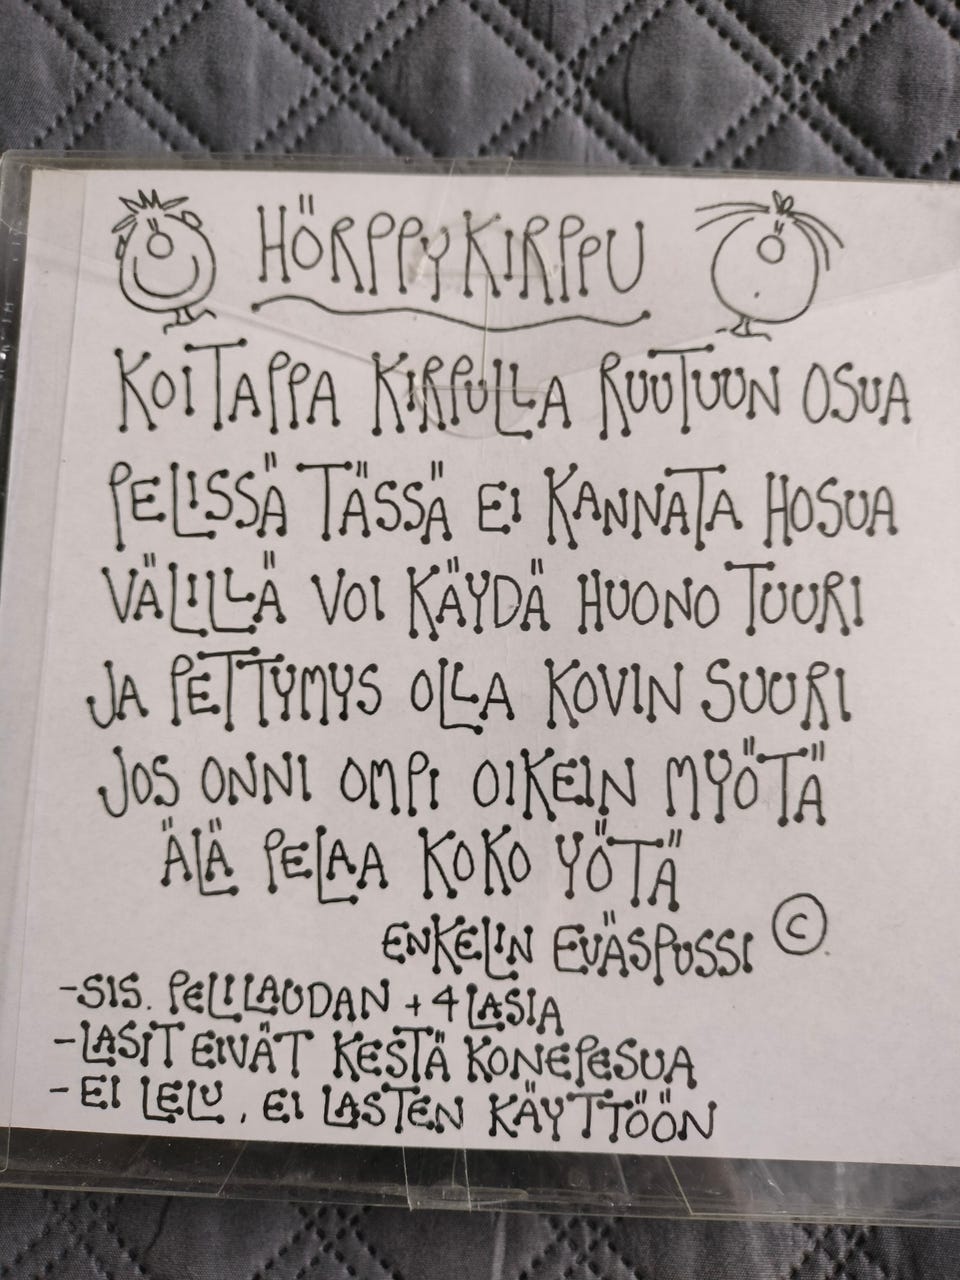 HÖRPPYKIRPPU
KOITAPPA KIRPULLA RUUTUUN OSUA
PELISSÄ TÄSSÄ EI KANNATA HOSUA
VÄLILLÄ VOI KÄYDÄ HUONO TUURI
JA PETTYMYS OLLA KOVIN SUURI
JOS ONNI OMPI OIKEIN MYÖTÄ
ÄLÄ PELAA KOKO YÖTÄ
ENKELIN EVÄSPUSSI ©.
-SIS. PELILAUDAN + 4 LASIA
-LASIT EIVÄT KESTÄ KONEPESUA
-EI LELU, EI LASTEN KÄYTTÖÖN